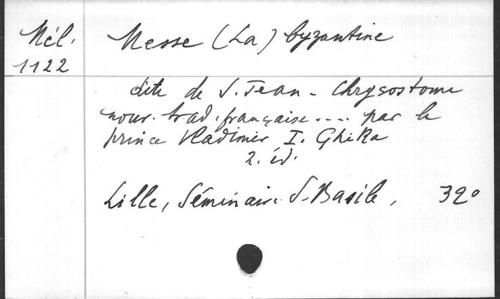 Mél. Messe (La) byzantine
1122
dite de S. Jean - Chrysostome
nouv. trad. française .... par le
prince Vladimir I. Ghika
2. éd.
Lille, Séminaire S-Basile, 32°